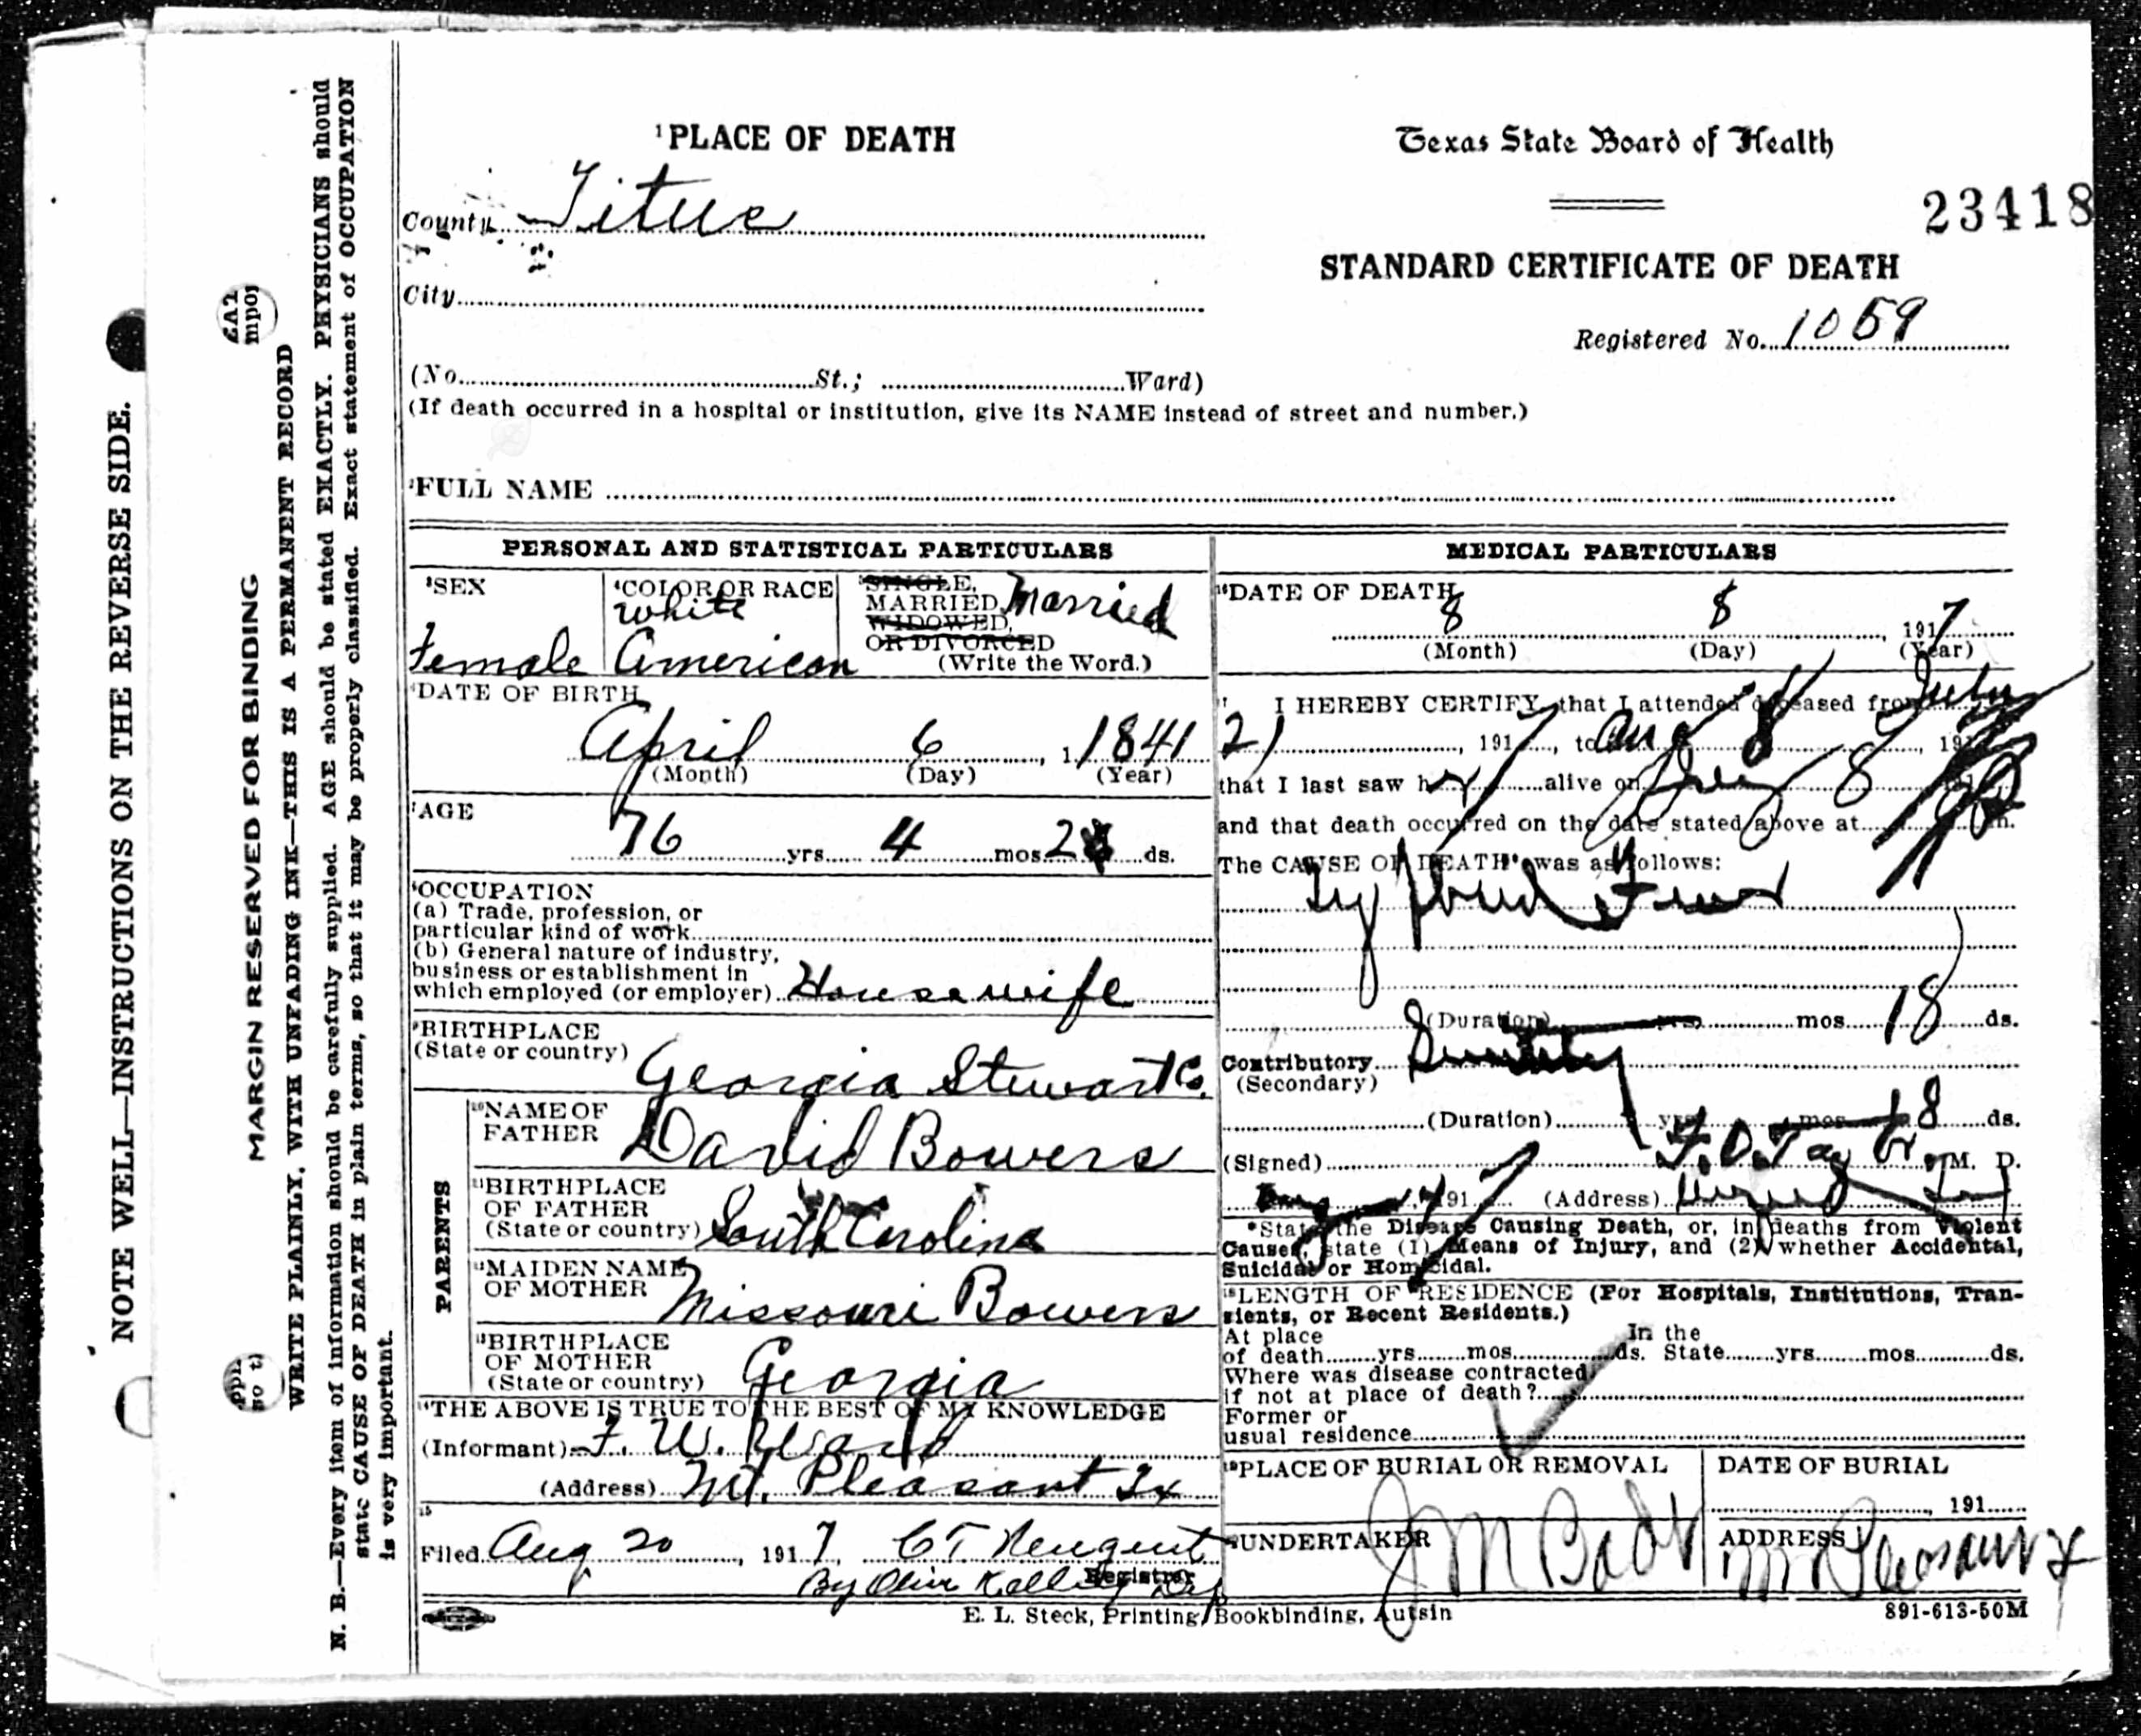 NOTE WELL—INSTRUCTIONS ON THE REVERSE SIDE.
MARGIN RESERVED FOR BINDING
WRITE PLAINLY, WITH UNFADING INK—THIS IS A PERMANENT RECORD
N. B.—Every item of information should be carefully supplied. AGE should be stated EXACTLY. PHYSICIANS should
state CAUSE OF DEATH in plain terms, so that it may be properly classified. Exact statement of OCCUPATION
is very important.
1 PLACE OF DEATH
County Titus
City
(No. St.; Ward)
(If death occurred in a hospital or institution, give its NAME instead of street and number.)
Texas State Board of Health
23418
STANDARD CERTIFICATE OF DEATH
Registered No. 1059
2 FULL NAME
PERSONAL AND STATISTICAL PARTICULARS
3 SEX
Female
4 COLOR OR RACE
White
American
5 SINGLE,
MARRIED, Married
WIDOWED,
OR DIVORCED
(Write the Word.)
6 DATE OF BIRTH
April 6, 1 1841
(Month) (Day) (Year)
7 AGE
76 yrs. 4 mos. 2 ds.
8 OCCUPATION
(a) Trade, profession, or
particular kind of work
(b) General nature of industry,
business or establishment in
which employed (or employer) Housewife
9 BIRTHPLACE
(State or country) Georgia Stewart Co.
PARENTS
10 NAME OF
FATHER David Bowers
11 BIRTHPLACE
OF FATHER
(State or country) South Carolina
12 MAIDEN NAME
OF MOTHER Missouri Bowers
13 BIRTHPLACE
OF MOTHER
(State or country) Georgia
14 THE ABOVE IS TRUE TO THE BEST OF MY KNOWLEDGE
(Informant) F. W.
(Address) Mt. Pleasant Tx
15
Filed Aug 20, 1917, CT Neugent
Registrar
By Olive
MEDICAL PARTICULARS
16 DATE OF DEATH
8 8, 1917
(Month) (Day) (Year)
17 I HEREBY CERTIFY, that I attended deceased from July
21, 1917, to Aug 8, 191
that I last saw her alive on 8
and that death occurred on the date stated above at m.
The CAUSE OF DEATH* was as follows:
Typhoid Fever
(Duration) yrs. mos. 18 ds.
Contributory
(Secondary)
(Duration) yrs. mos. 18 ds.
(Signed) M. D.
191 (Address)
*State the Disease Causing Death, or, in deaths from Violent
Causes, state (1) Means of Injury, and (2) whether Accidental,
Suicidal or Homicidal.
18 LENGTH OF RESIDENCE (For Hospitals, Institutions, Tran-
sients, or Recent Residents.)
At place In the
of death yrs. mos. ds. State yrs. mos. ds.
Where was disease contracted,
if not at place of death?
Former or
usual residence
19 PLACE OF BURIAL OR REMOVAL
DATE OF BURIAL
, 191
20 UNDERTAKER
J M
ADDRESS
Mt Pleasant
E. L. Steck, Printing, Bookbinding, Autsin
891-613-50M